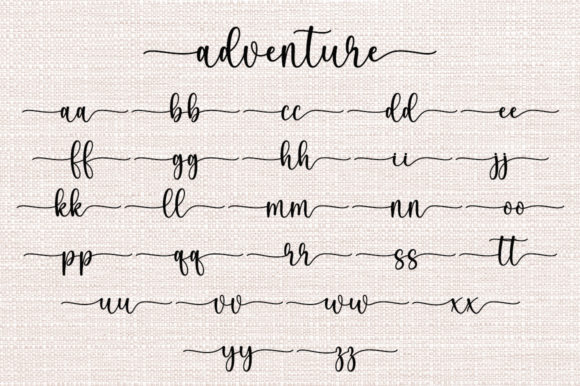 adventure
aa bb cc dd ee
ff gg hh ii jj
kk ll mm nn oo
pp qq rr ss tt
uu vv ww xx
yy zz